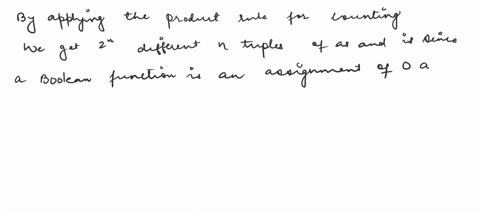 By applying the product rule for counting
We get 2ⁿ different n tuples of as and is since
a Boolean function is an assignment of 0 a